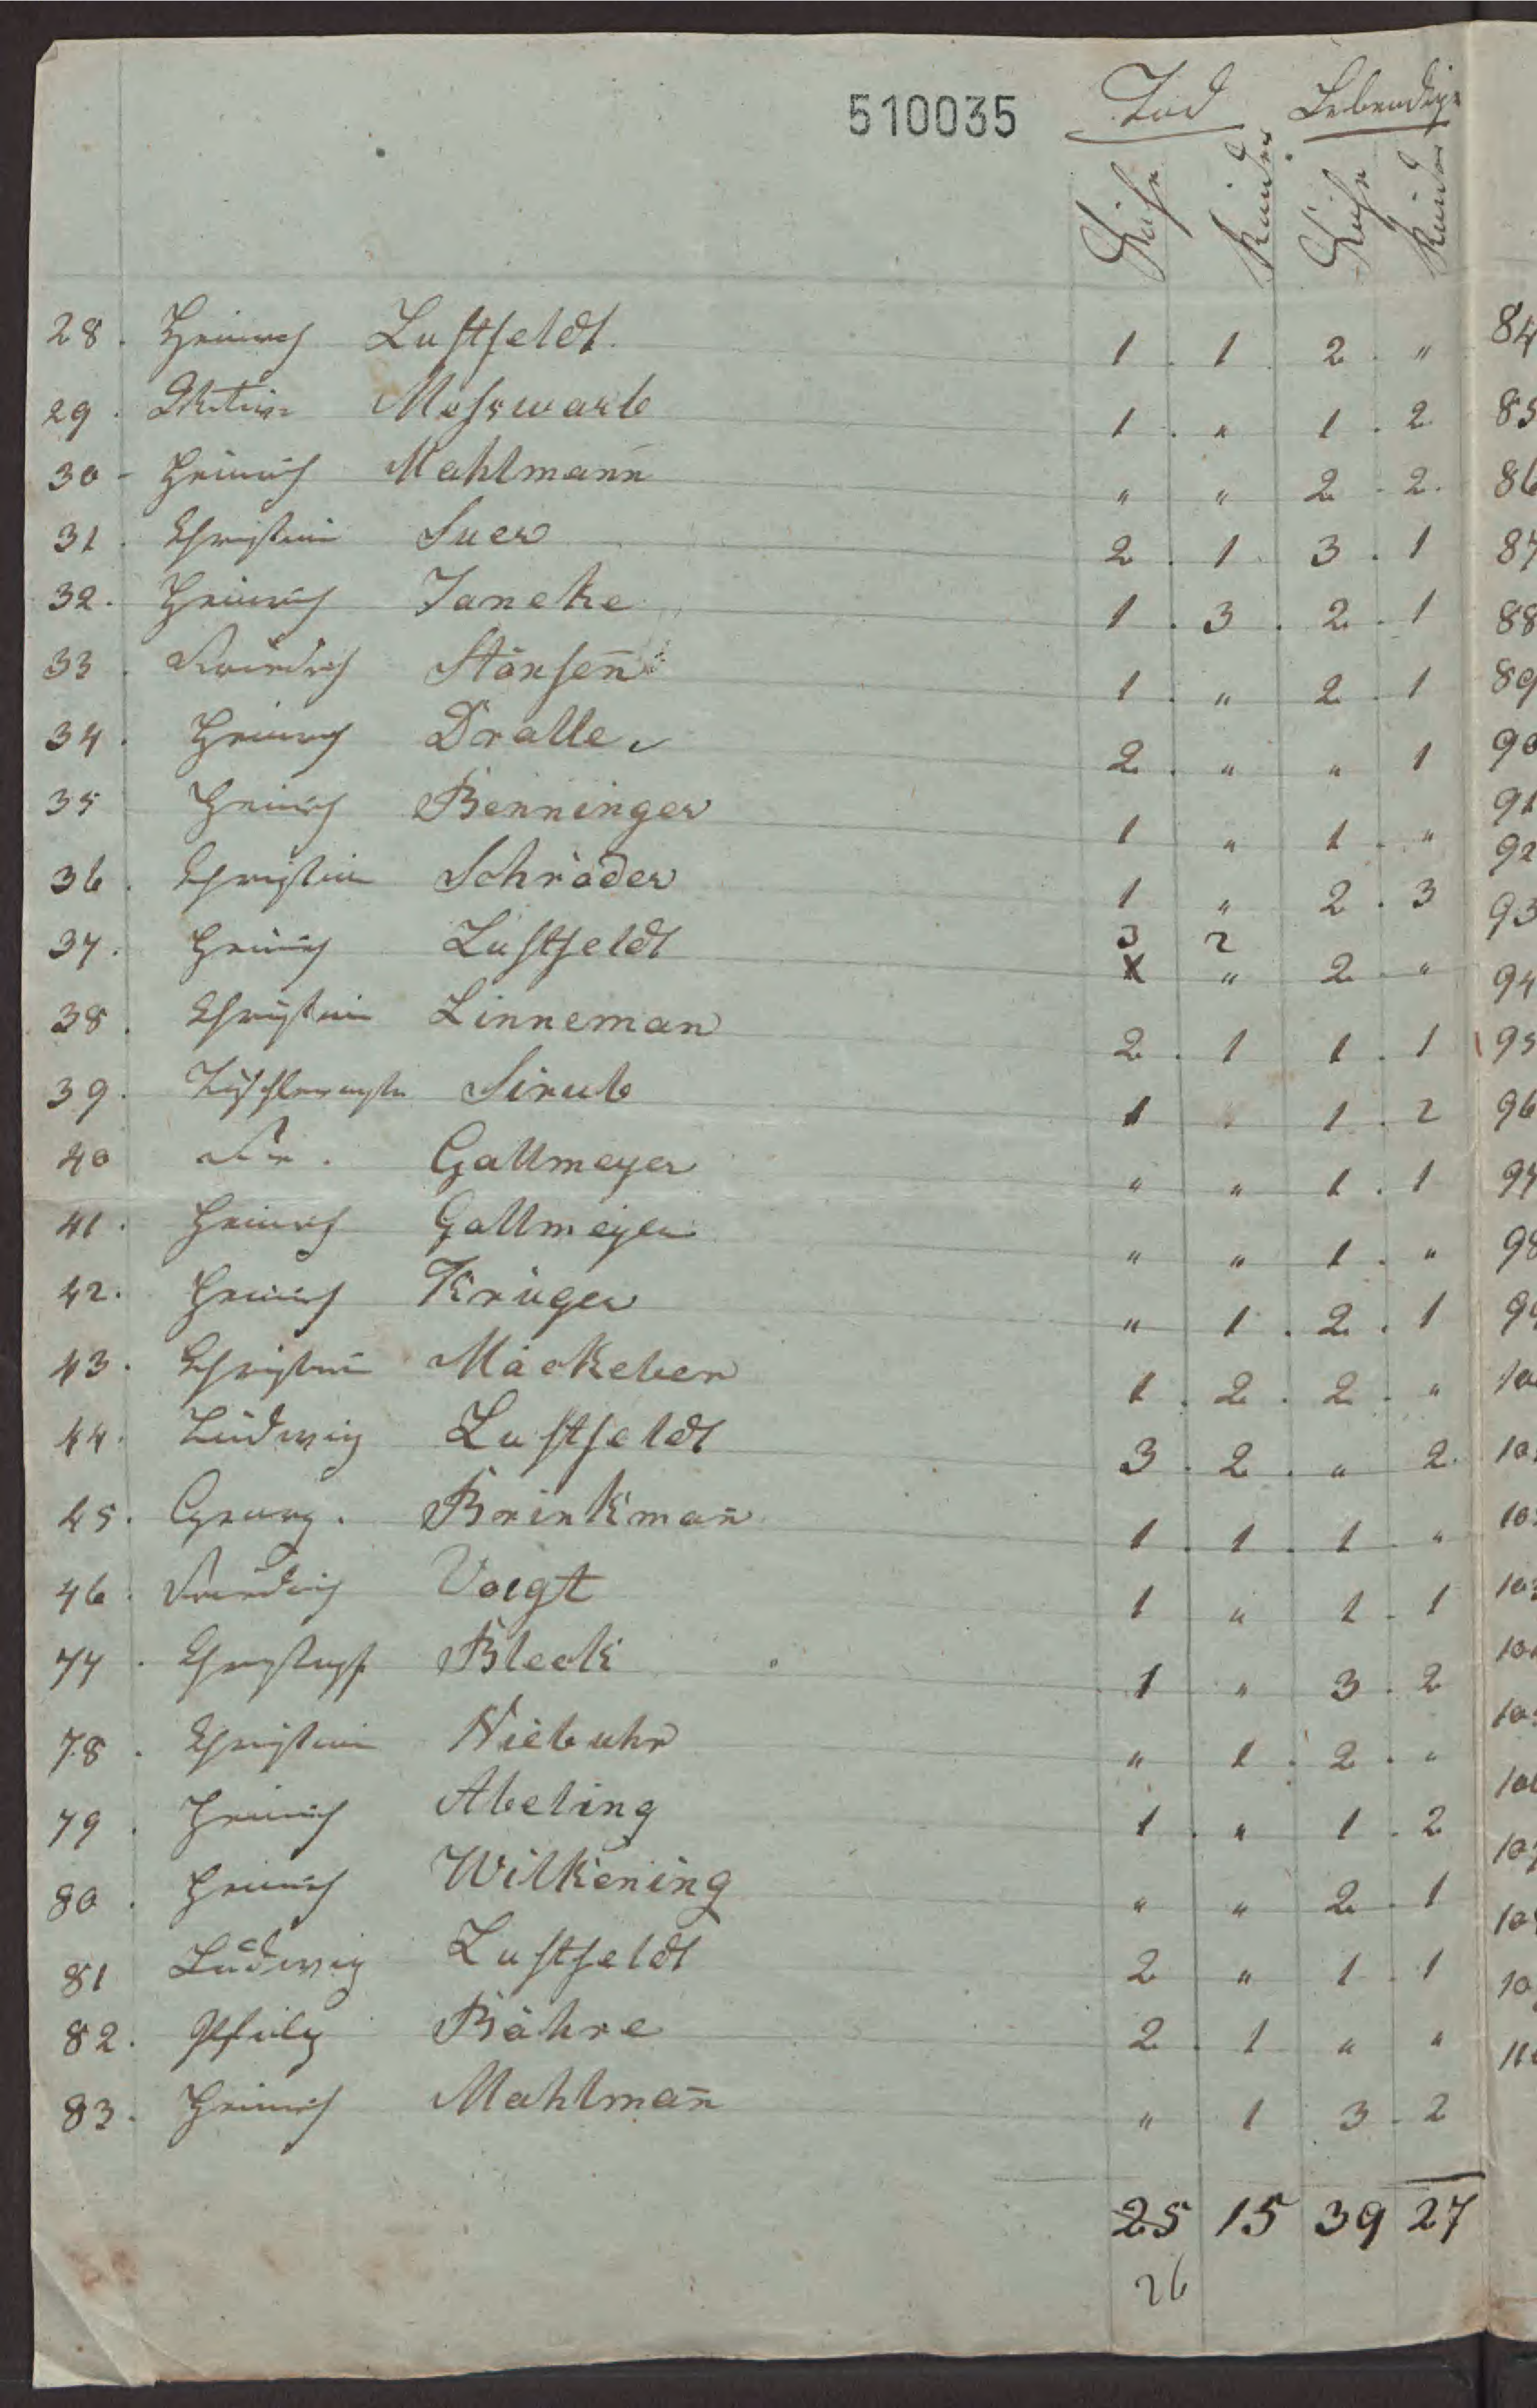 510035 Tod Lebendige
Kühe Rinder Kühe Rinder
28. Heinrich Lustfeldt. 1. 1. 2. "
29. Mesewarb 1. " 1. 2
30 - Heinrich Mahlmann̄ " " 2. 2.
31. Christian Suer 2. 1 3. 1
32. Heinrich Janeke 1. 3. 2. 1
33. Friedrich Störsen̄ 1. " 2. 1
34. Heinrich Dralle 2. " " 1
35 Heinrich Benninger 1 " 1. "
36. Christian Schräder 1 " 2. 3
37. Heinrich Lustfeldt 3 2
X " 2 "
38. Christian Linneman 2. 1 1. 1
39. Tischlermstr Sirub 1 1. 2
40 Fr. Gallmeyer " " 1. 1
41. Heinrich Gallmeyer " " 1. "
42. Heinrich Krüger " 1. 2. 1
43. Christian Mäckeber 1. 2. 2. "
44. Ludwig Lustfeldt 3. 2. " 2.
45. Georg. Brinkman̄ 1. 1. 1 "
46. Friedrich Voigt 1 " 1. 1
77. Christoph Bleck 1 " 3. 2
78. Christian Niebuhr " 1. 2. "
79. Heinrich Abeling 1. " 1. 2
80. Heinrich Wilkening " " 2. 1
81 Ludwig Lustfeldt 2 " 1. 1
82. Philip Bähre 2. 1 " "
83. Heinrich Mahlman̄ " 1 3. 2
25 15 39 27
26
84
85
86
87
88
89
90
91
92
93
94
95
96
97
98